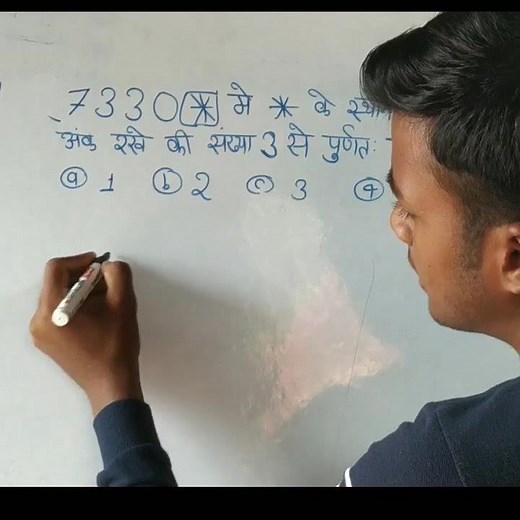 7330* मे * के स्थान
अंक रखे की संख्या 3 से पुर्णतः
(a) 1 (b) 2 (c) 3 (d)